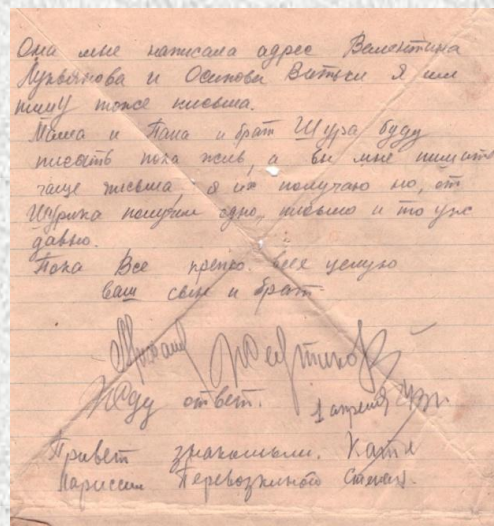 Она мне написала адрес Валентина
Лукьянова и Осипова Витьки я им
пишу тоже письма.
Мама и Папа и брат Шура буду
писать пока жив, а вы мне пишите
чаще письма я их получаю но, от
Шурика получил одно, письмо и то уж
давно.
Пока Все крепко всех целую
ваш сын и брат
Михаил
Жду ответ. 1 апреля
Привет знакомым. Катя